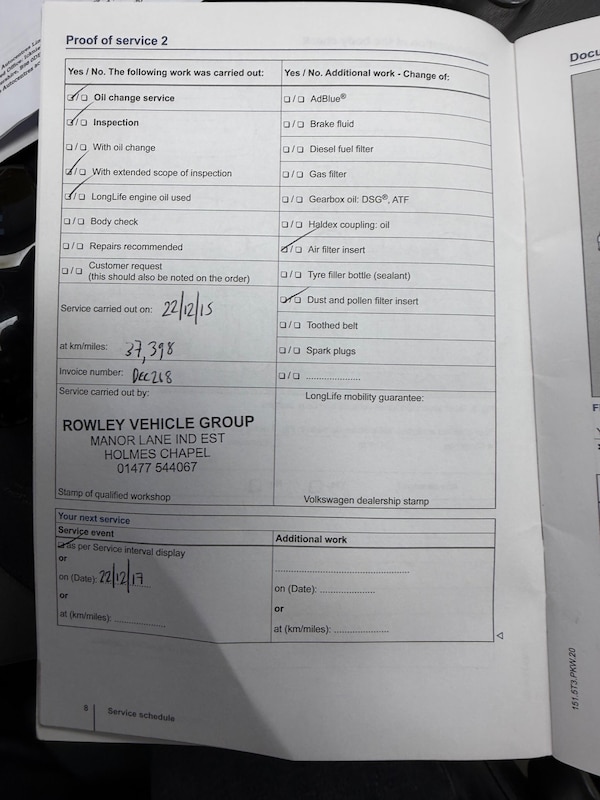 Proof of service 2
Yes / No. The following work was carried out:
☑/☐ Oil change service
☑/☐ Inspection
☐/☐ With oil change
☑/☐ With extended scope of inspection
☑/☐ LongLife engine oil used
☐/☐ Body check
☐/☐ Repairs recommended
☐/☐ Customer request
(this should also be noted on the order)
Service carried out on: 22/12/15
at km/miles: 37,398
Invoice number: DEC268
Service carried out by:
ROWLEY VEHICLE GROUP
MANOR LANE IND EST
HOLMES CHAPEL
01477 544067
Stamp of qualified workshop
Yes / No. Additional work - Change of:
☐/☐ AdBlue®
☐/☐ Brake fluid
☐/☐ Diesel fuel filter
☐/☐ Gas filter
☐/☐ Gearbox oil: DSG®, ATF
☐/☐ Haldex coupling: oil
☑/☐ Air filter insert
☐/☐ Tyre filler bottle (sealant)
☑/☐ Dust and pollen filter insert
☐/☐ Toothed belt
☐/☐ Spark plugs
☐/☐ .....................
LongLife mobility guarantee:
Volkswagen dealership stamp
Your next service
Service event
☑ as per Service interval display
or
on (Date): 22/12/17
or
at (km/miles): ...................
Additional work
.................................................
on (Date): ....................
or
at (km/miles): ....................
8 Service schedule
Docu
151.5T3.PKW.20